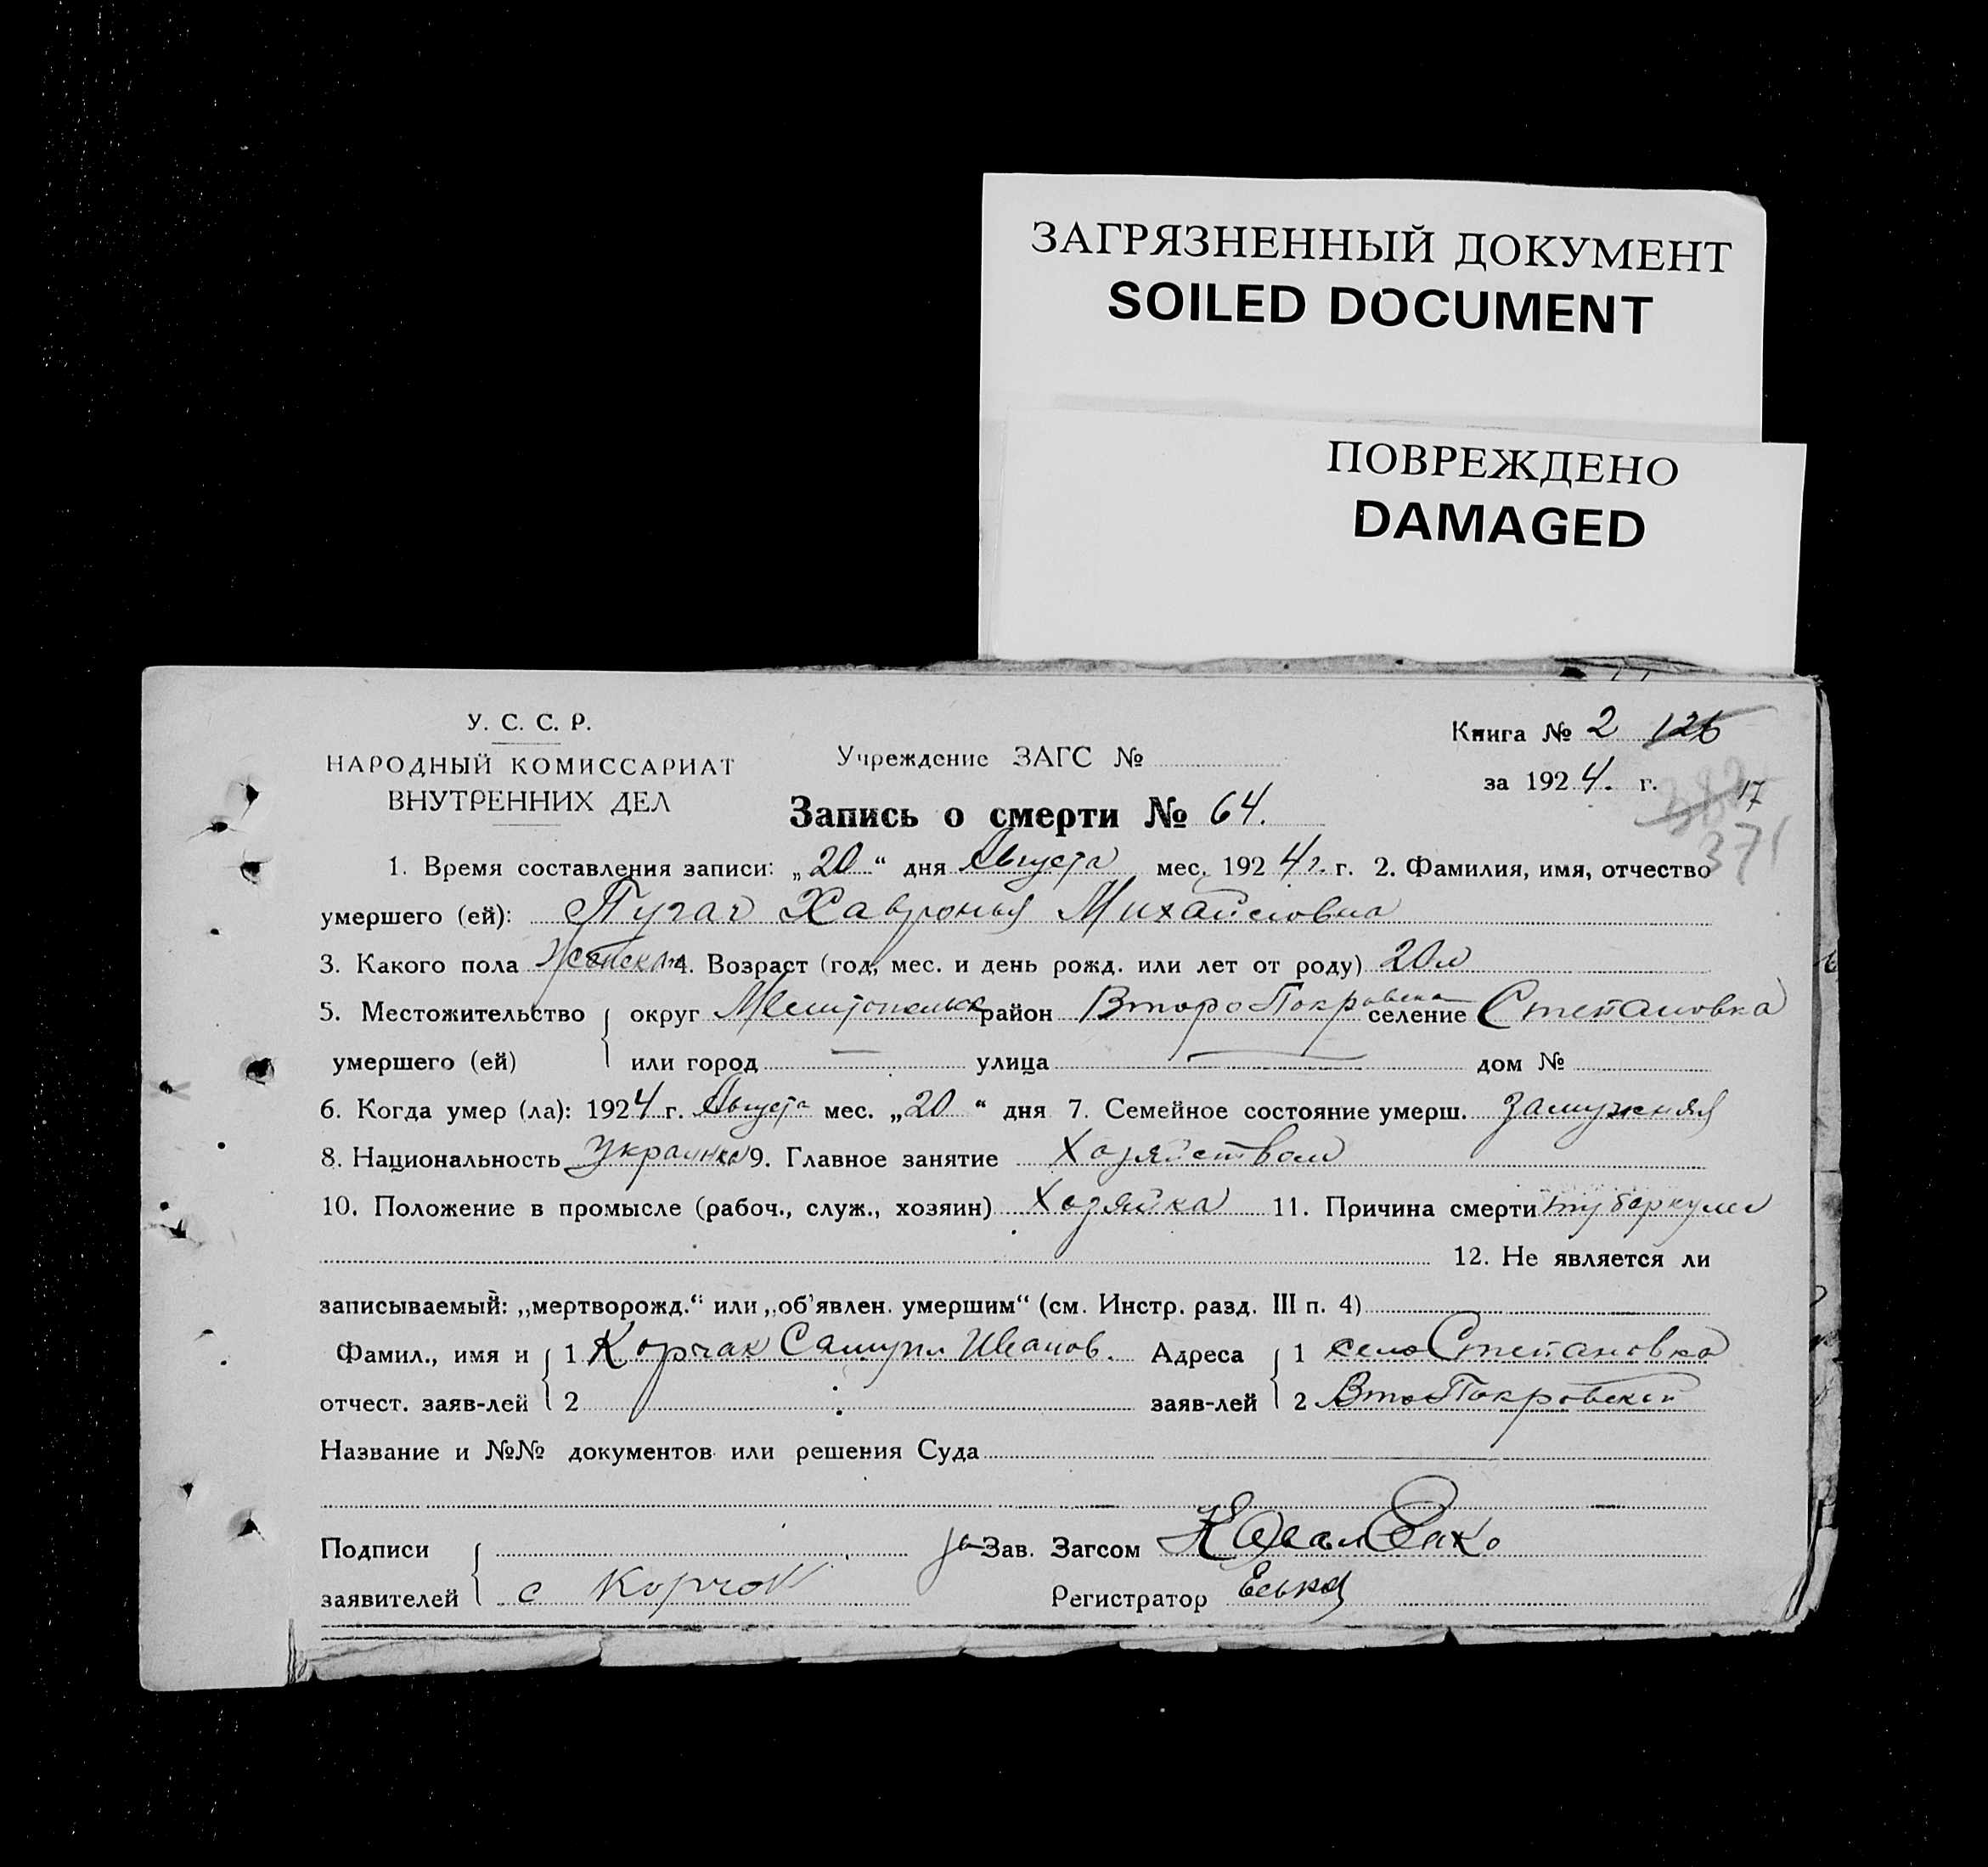 ЗАГРЯЗНЕННЫЙ ДОКУМЕНТ
SOILED DOCUMENT
ПОВРЕЖДЕНО
DAMAGED
У. С. С. Р.
НАРОДНЫЙ КОМИССАРИАТ
ВНУТРЕННИХ ДЕЛ
Учреждение ЗАГС №
Книга № 2 126
за 1924. г. 17
371
Запись о смерти № 64.
1. Время составления записи: „20“ дня Августа мес. 1924 г. г. 2. Фамилия, имя, отчество
умершего (ей): Пугач Хавронья Михайловна
3. Какого пола Женска 4. Возраст (год, мес. и день рожд. или лет от роду) 20 л
5. Местожительство округ Мелитопольск район Второ Покровска селение Степановка
умершего (ей) или город — улица — дом №
6. Когда умер (ла): 1924 г. Августа мес. „20“ дня 7. Семейное состояние умерш. замужняя
8. Национальность украинка 9. Главное занятие Хозяйством
10. Положение в промысле (рабоч., служ., хозяин) Хозяйка 11. Причина смерти туберкулез
12. Не является ли
записываемый: „мертворожд.“ или „об’явлен. умершим“ (см. Инстр. разд. III п. 4)
Фамил., имя и 1 Корчак Самуил Иванов. Адреса 1 село Степановка
отчест. заяв-лей 2 заяв-лей 2 Вто Покровской
Название и №№ документов или решения Суда
Подписи за Зав. Загсом Коваленко
заявителей с Корчак Регистратор